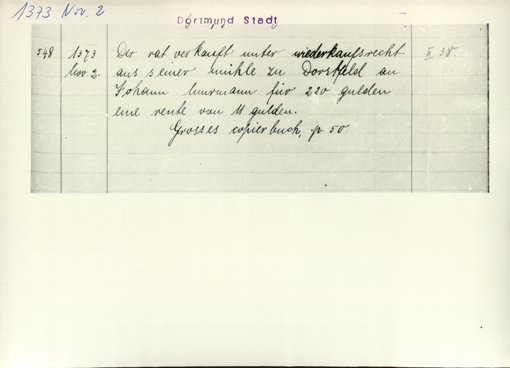 1373 Nov. 2
Dortmund Stadt
548 1373 Nov 2. Der rat verkauft unter wiederkaufsrecht II 38.
aus seiner mühle zu Dorstfeld an
Johann Murmann für 220 gulden
eine rente von 11 gulden.
Grosses copierbuch, p. 50.